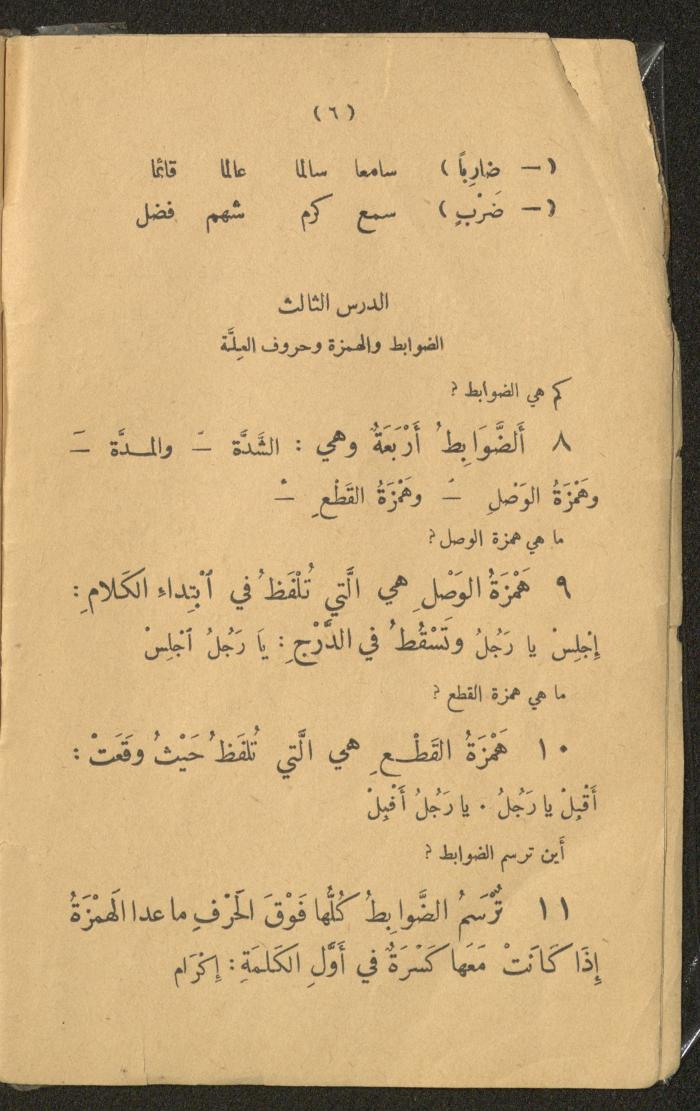 (٦)
(ـً ضارِباً) سامعا سالما عالما قائما
(ـٍ ضَرْبٍ) سمع كرم شهم فضل
الدرس الثالث
الضوابط والهمزة وحروف العِلَّة
كم هي الضوابط ؟
٨ أَلضَّوَابِطُ أَرْبَعَةٌ وهي : الشَّدَّة ـّ والمـدَّة ـٓ
وهَمْزَةُ الوَصْلِ ـٱ وهَمْزَةُ القَطْعِ ـٔ
ما هي همزة الوصل ؟
٩ هَمْزَةُ الوَصْلِ هي الَّتي تُلْفَظُ في ٱبْتِداءِ الكَلامِ :
إِجْلِسْ يا رَجُلُ وتَسْقُطُ في الدَّرْجِ : يَا رَجُلُ ٱجْلِسْ
ما هي همزة القطع ؟
١٠ هَمْزَةُ القَطْـعِ هي الَّتي تُلفَظُ حَيْثُ وقَعَتْ :
أَقْبِلْ يا رَجُلُ . يا رَجُلُ أَقْبِلْ
أين ترسم الضوابط ؟
١١ تُرْسَمُ الضَّوابِطُ كُلُّها فَوْقَ الحَرْفِ ما عدا الهَمْزَةُ
إِذَا كَانَتْ مَعَها كَسْرَةٌ في أَوَّلِ الكَلمَةِ : إِكْرَام